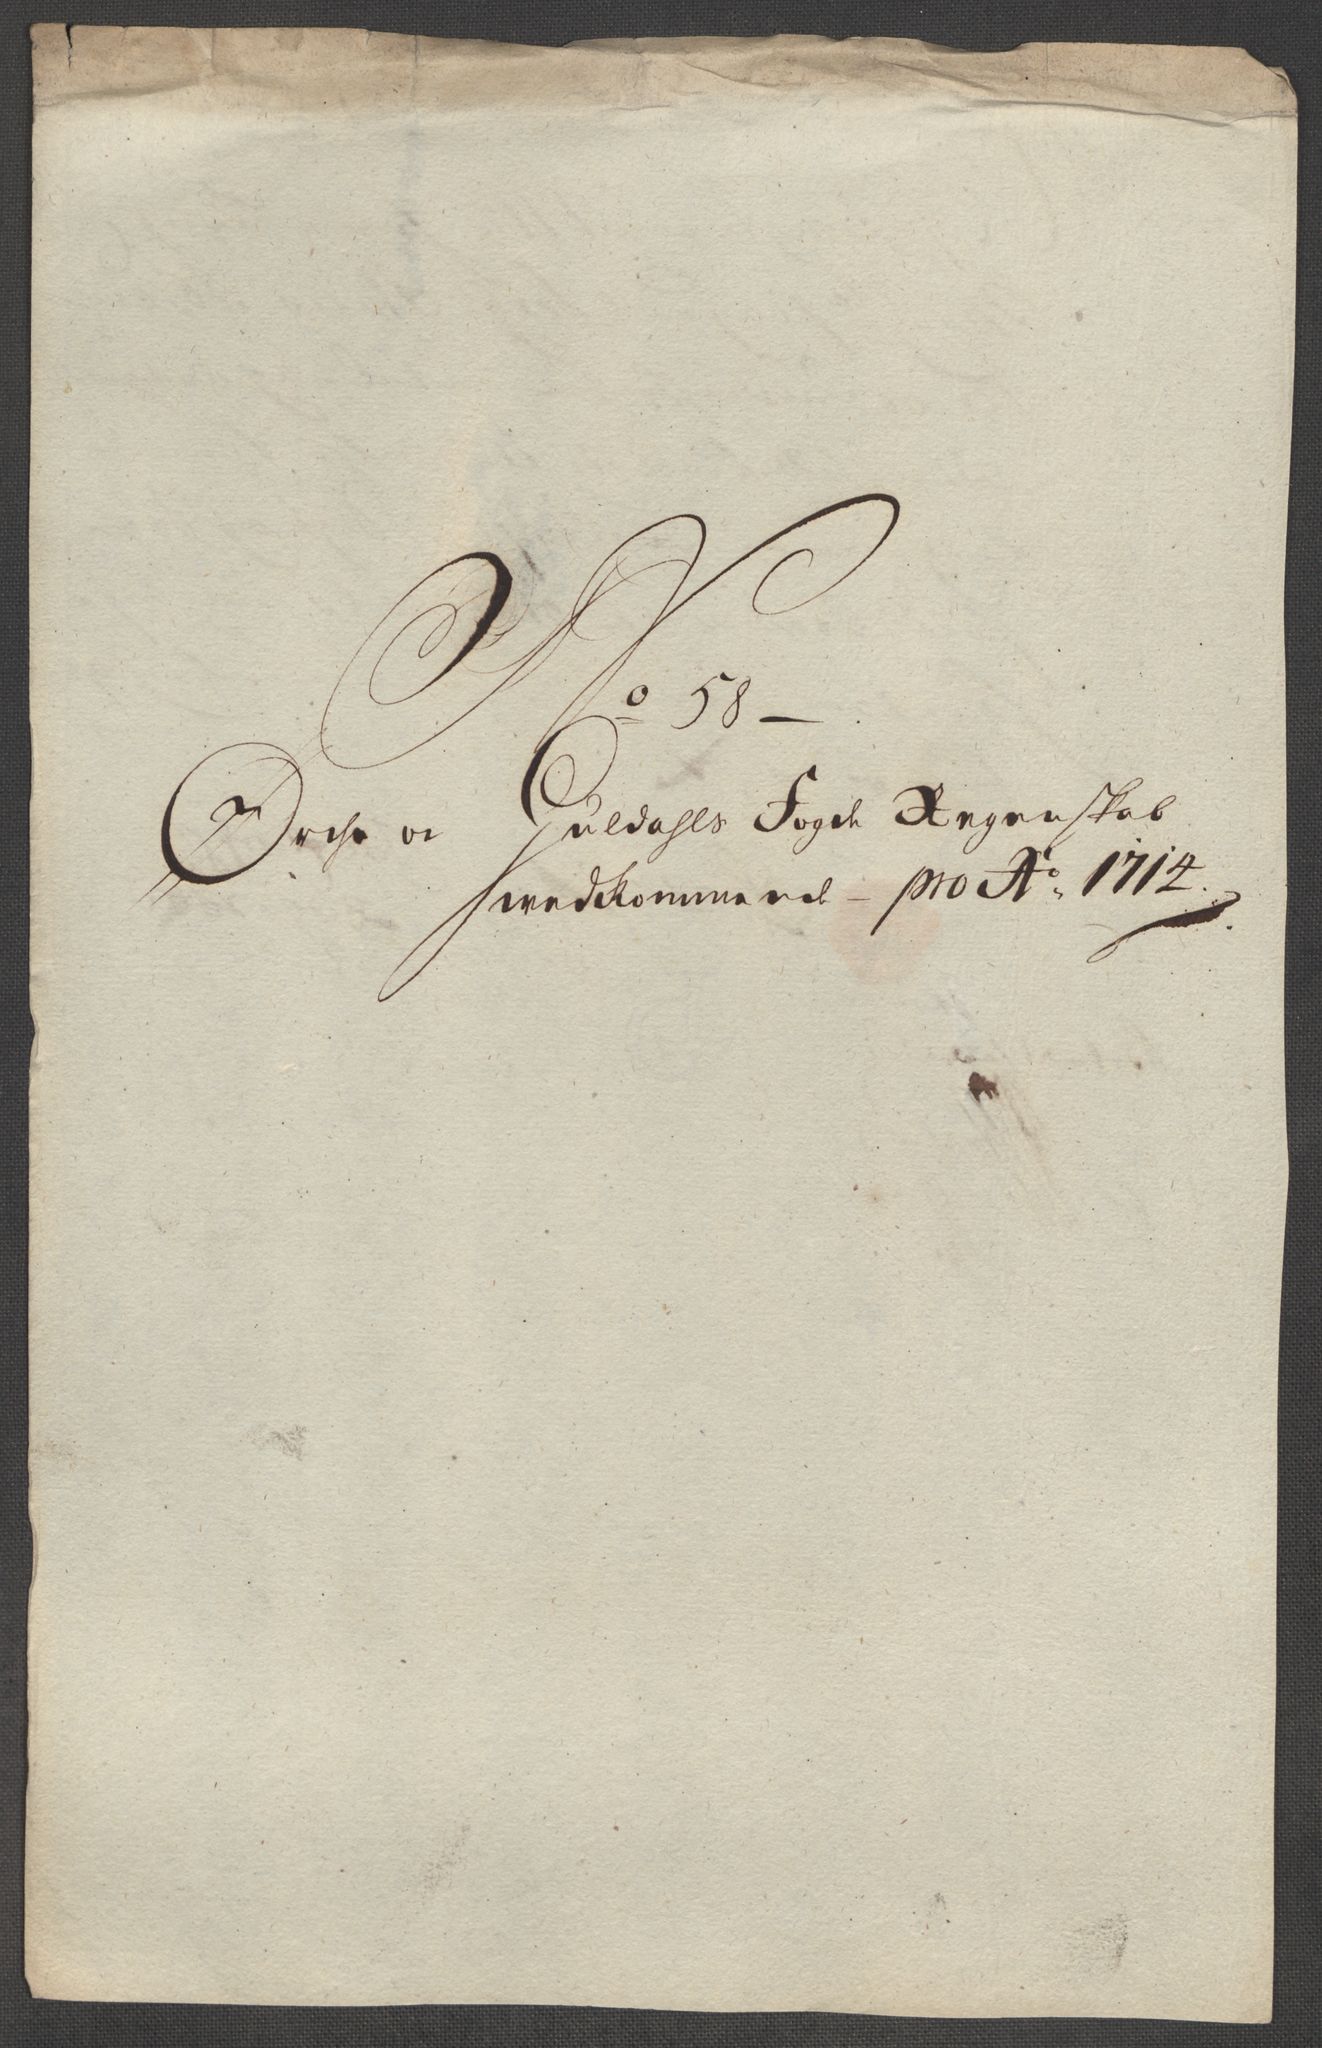 No 58 —
Orche oc Guldahls Fogde Regenskab
wedkommende — pro Ao. 1714.